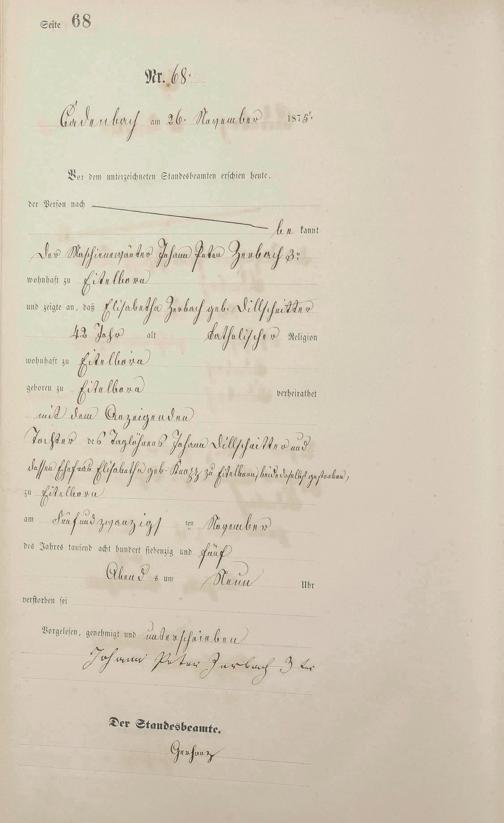 Seite 68
Nr. 68.
Cadenbach am 26. November 1875.
Vor dem unterzeichneten Standesbeamten erschien heute,
der Person nach
be kannt
der Maschienenwärter Johann Peter Zerbach 3r
wohnhaft zu Eitelborn
und zeigte an, daß Elisabetha Zerbach geb. Dillschnitter
42 Jahr alt katholischer Religion
wohnhaft zu Eitelborn
geboren zu Eitelborn verheirathet
mit dem Anzeigenden
Tochter des Taglöhners Johann Dillschnitter und
dessen Ehefrau Elisabetha geb. zu Eitelborn, beide daselbst gestorben,
zu Eitelborn
am Fünfundzwanzigs ten November
des Jahres tausend acht hundert siebenzig und fünf
Abend s um Neun Uhr
verstorben sei
Vorgelesen, genehmigt und unterschrieben
Johann Peter Zerbach 3 ter
Der Standesbeamte.